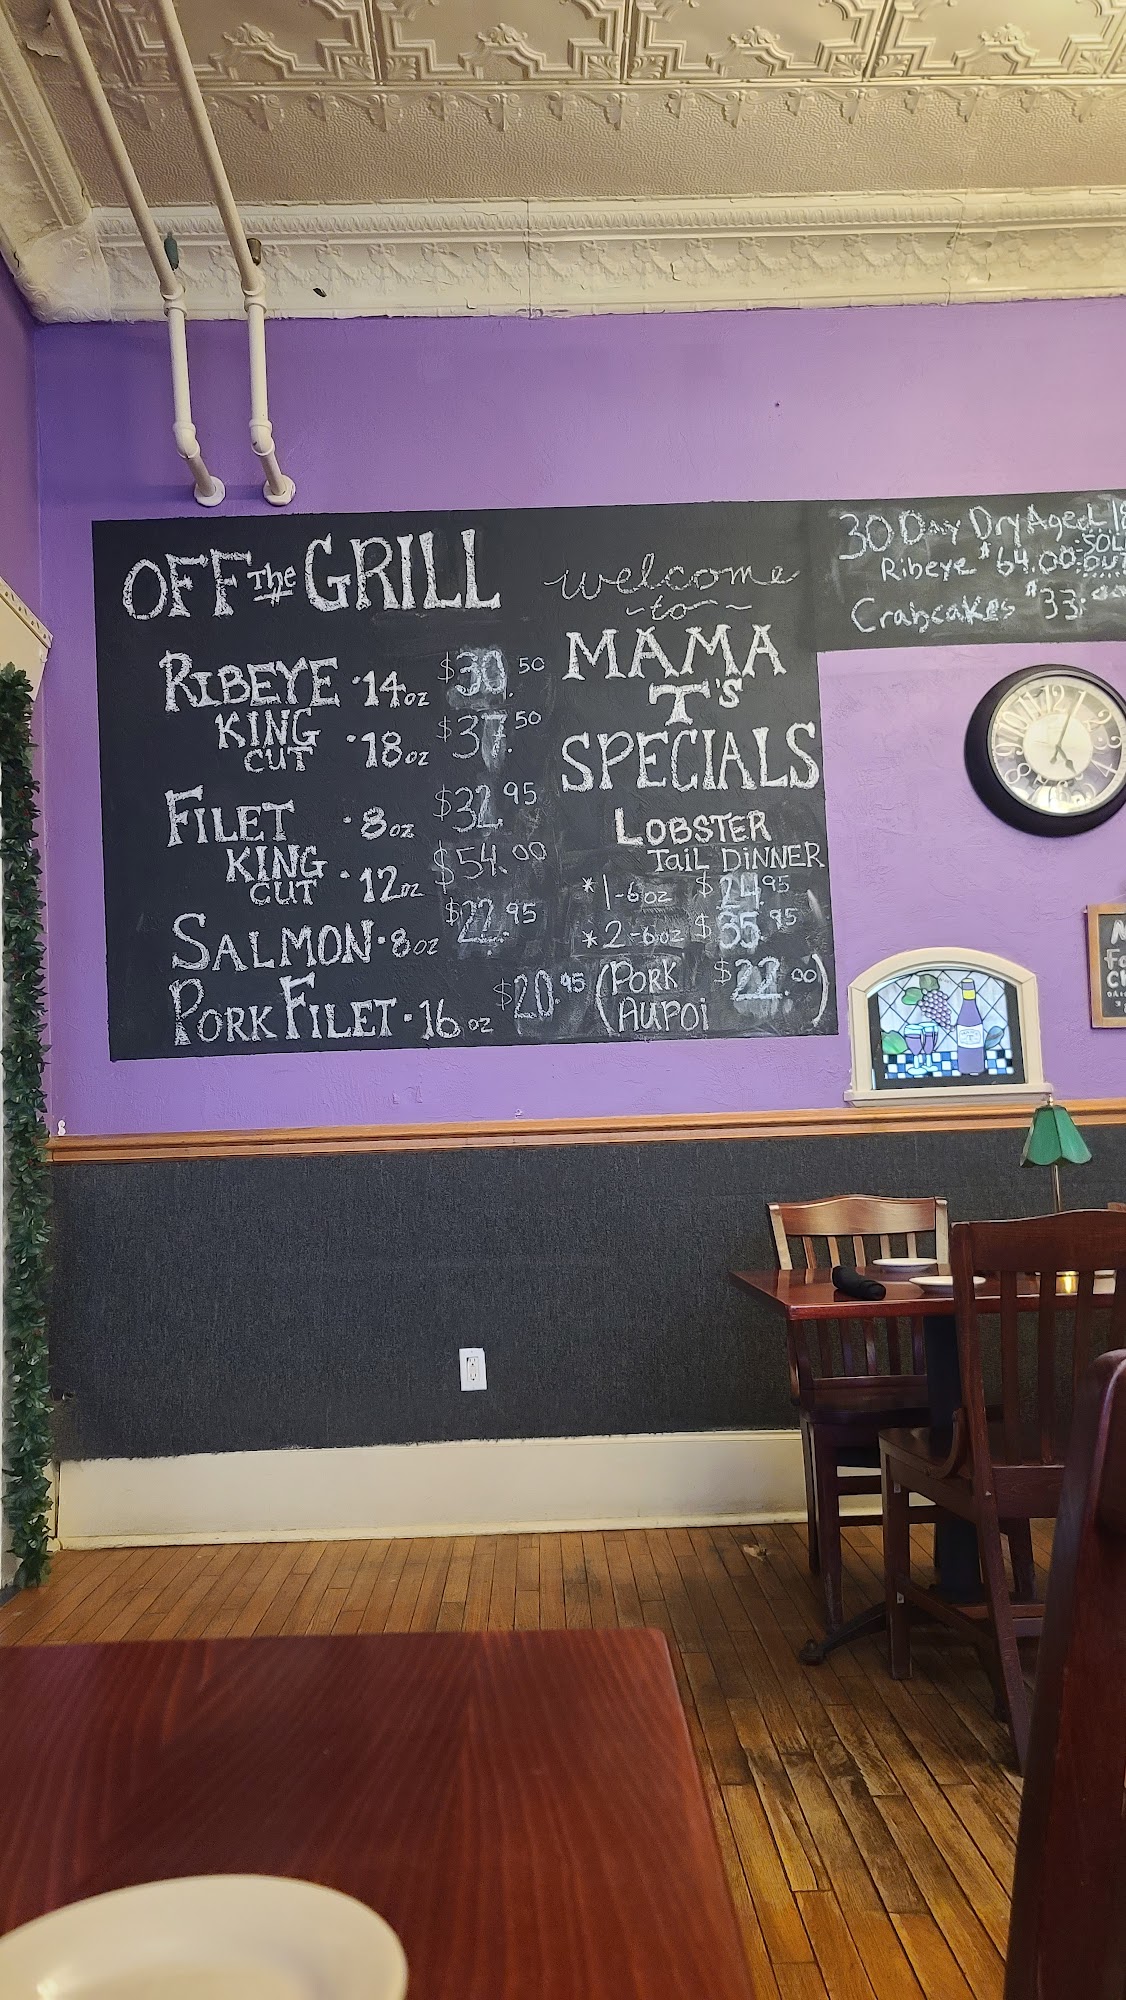 OFF the GRILL
RIBEYE · 14oz $30.50
KING CUT · 18oz $37.50
FILET · 8oz $32.95
KING CUT · 12oz $54.00
SALMON · 8oz $22.95
PORK FILET · 16oz $20.95
welcome
~to~
MAMA
T's
SPECIALS
LOBSTER
TAIL DINNER
*1-6oz $24.95
*2-6oz $35.95
(PORK $22.00)
AUPOI
30 Day Dry Aged
Ribeye $64.00 SOL
OUT
Crabcakes $33.00
12 1 2 3 4 5 6 7 8 9 10 11